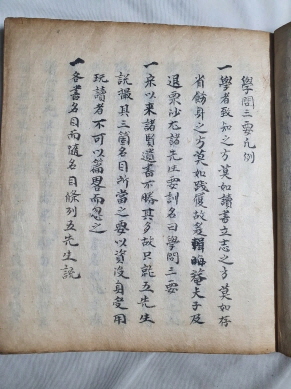 學問三要凡例
一學者致知之方莫如讀書立志之方莫如存
省飭身之方莫如踐履故爰輯晦菴夫子及
退栗沙尤諸先生要訓名曰學問三要
一宋以来諸賢遺書不勝其多故只就五先生
說撮其三箇名目所當之要以資沒身受用
玩讀者不可以篇畧而忽之
一各書名目而隨名目條列五先生說